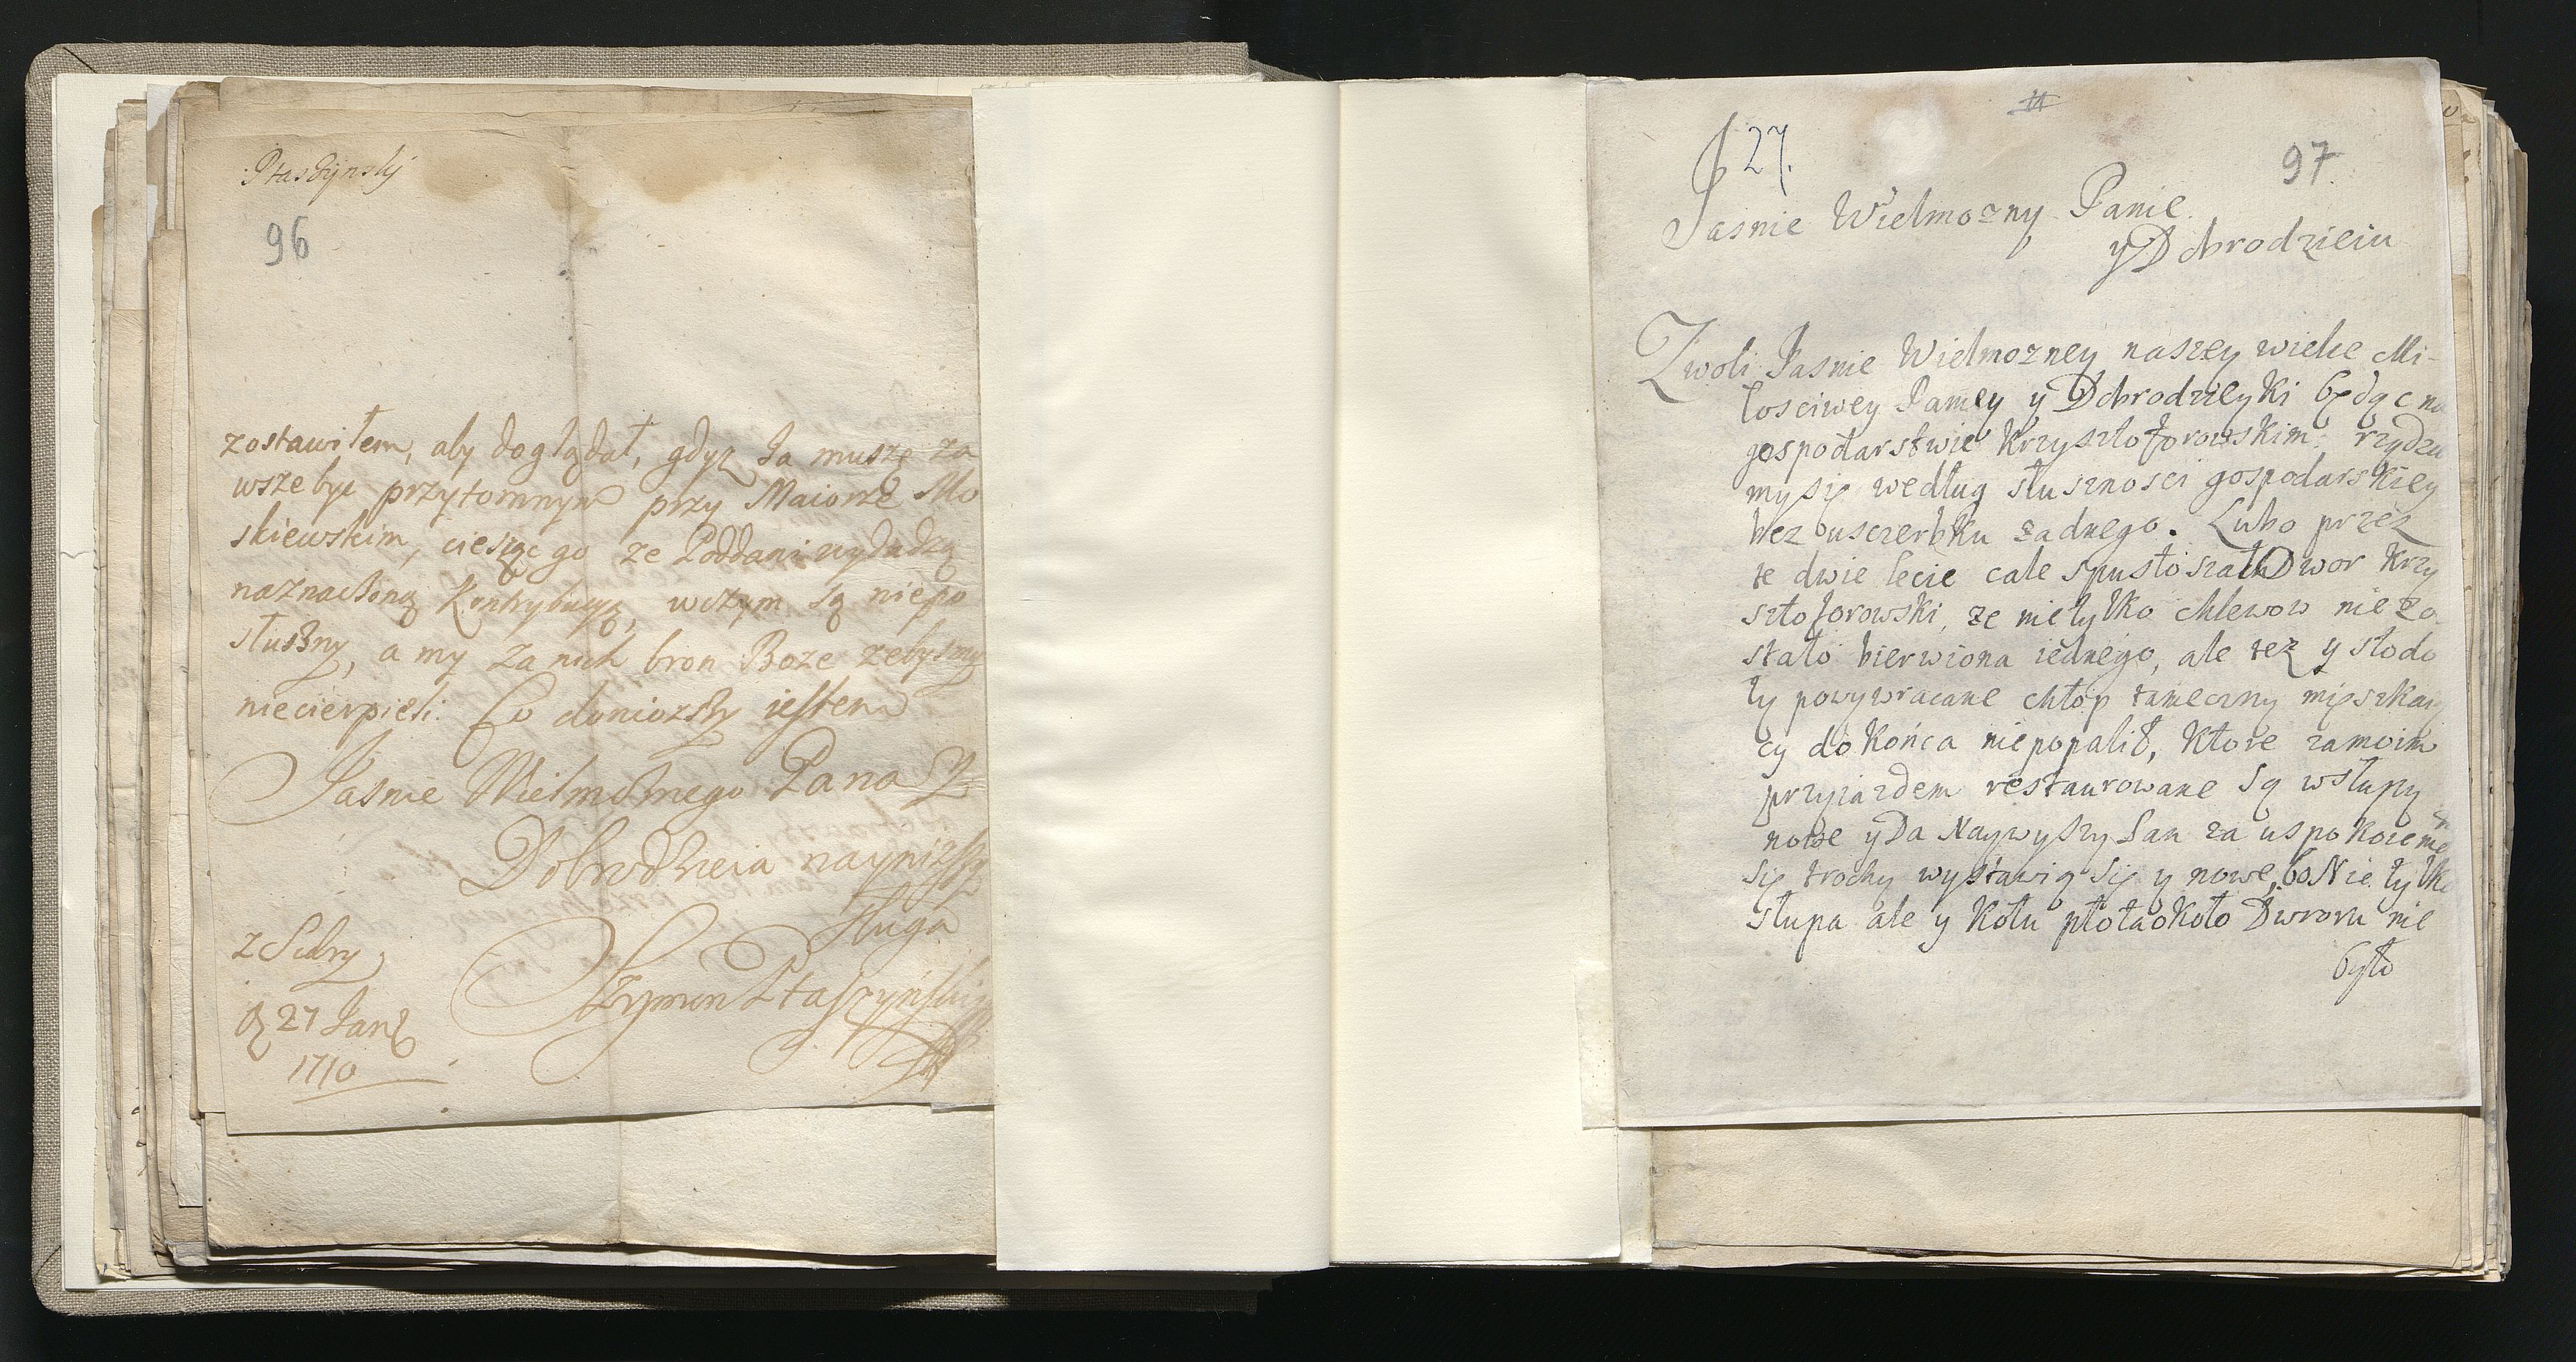 Ptaszynsky
96
zostawiłem, aby doglądał, gdyz Ja muszę za
wsze byc przytomnym przy Maiorze Mo
skiewskim, ciesząc go ze Poddani wydadzą
naznaczoną Kontrybucyą, wczym są niepo
słuszny, a my za nich bron Boze zebysmy
niecierpieli. Co doniozszy iestem
Jasnie Wielmoznego Pana Y
Dobrodzieia nayniższy
sługa
Szymon Ptaszyński
27 Jan
1710
27.
97
Jasnie Wielmozny Panie
y Dobrodzieiu
Zwoli Jasnie Wielmozney naszey wielce Mi-
łosciwey Paniey y Dobrodzieyki będąc na
gospodarstwie Krzysztoforowskim, rządze
my się według słusznosci gospodarskiey
bez uszczerbku zadnego. Lubo przez
te dwie lecie cale spustoszał Dwor Krzy
sztoforowski, ze nie tylko chlewow nie zo
stało bierwiona iednego, ale tez y stodo
ły powywracane chłop tameczny mięszkaią
cy do końca niepopalił, ktore zamoim
przyiazdem restaurowane są wsłupy
nowe y Da Naywyszy Pan za uspokoienie
się trochy wystawią się y nowe, bo Nie tylko
słupa ale y kołu płota około Dworu nie
było